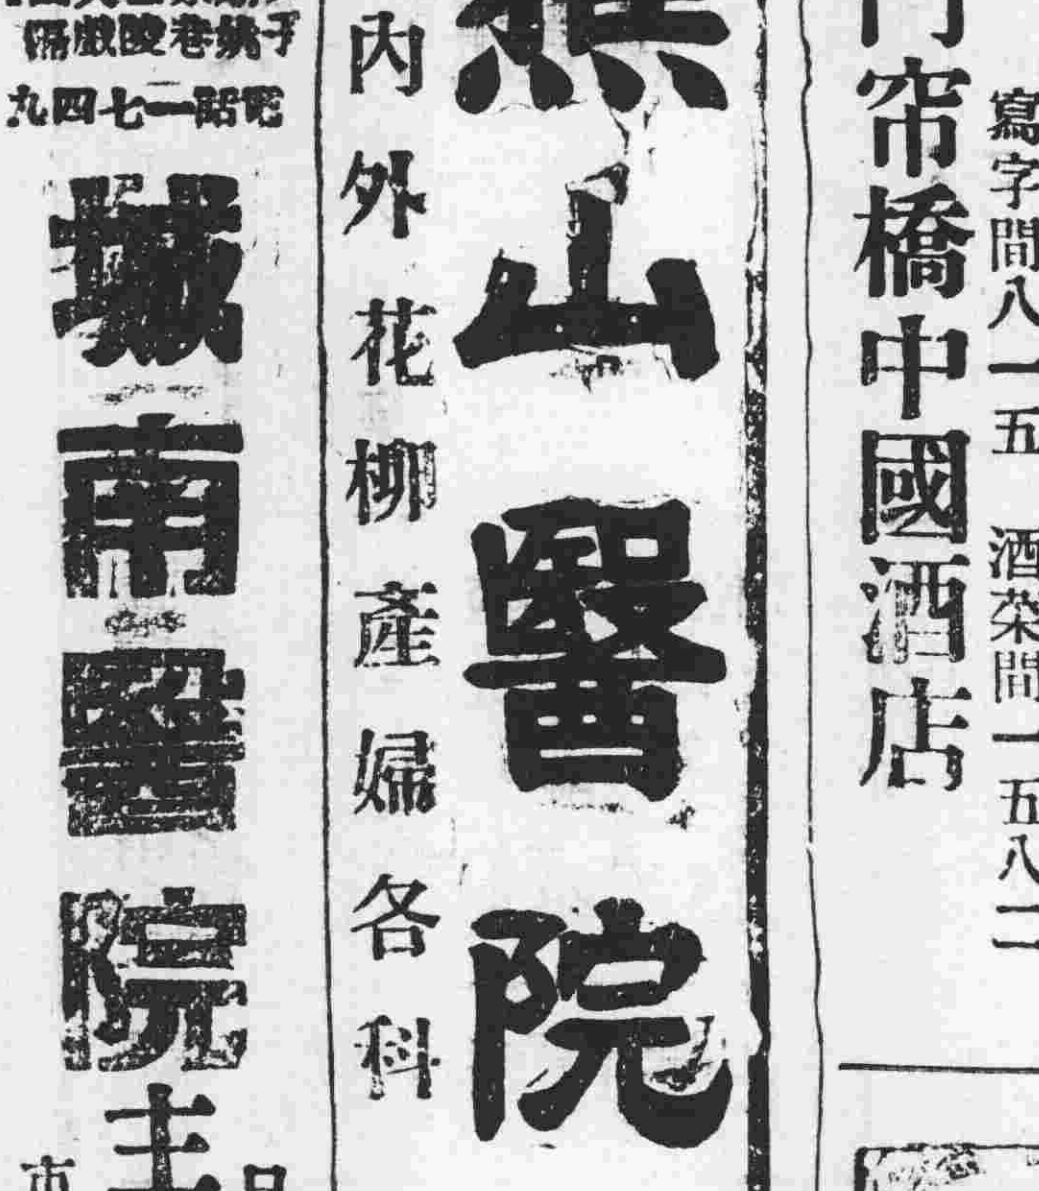 寫字間八一五　酒菜間一五八二
門帘橋中國酒店
山醫院
內外花柳產婦各科
子姚巷陵戲隔
電話二七四九
城南醫院
主